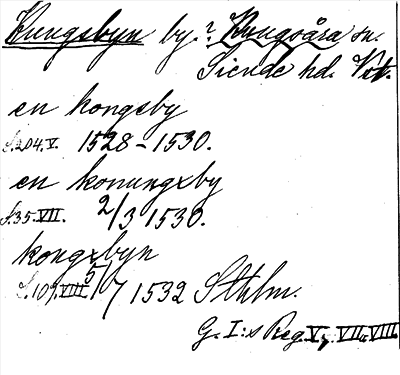 Kungsbyn by. ? Kungsåra sn.
Siende hd. Vstm.
en kongsby
S. 204. V. 1528-1530.
en konungxby
S. 35. VII. 2/3 1530.
kongxbyn
S. 109. VIII 5/7 1532 Sthlm.
G. I:s Reg. V, VII, VIII.